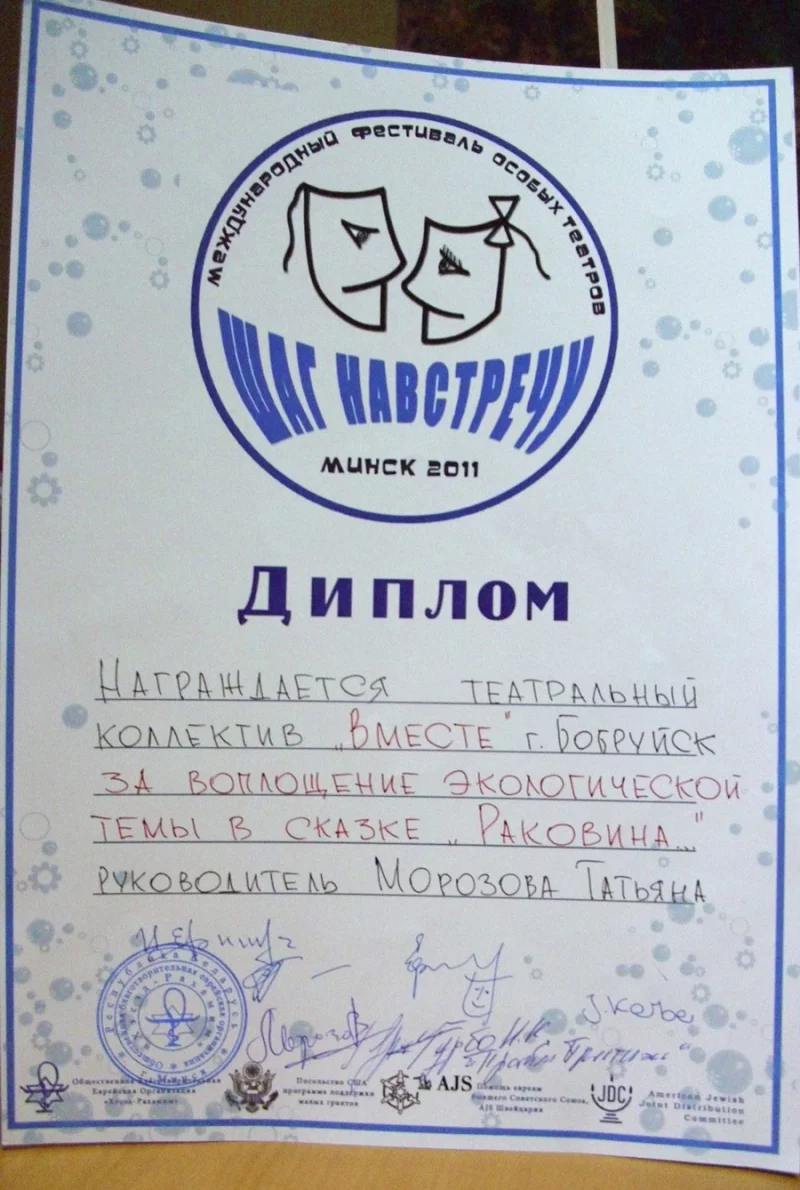 международный фестиваль особых театров
ШАГ НАВСТРЕЧУ
МИНСК 2011
Диплом
НАГРАЖДАЕТСЯ ТЕАТРАЛЬНЫЙ
КОЛЛЕКТИВ „ВМЕСТЕ" г. БОБРУЙСК
ЗА ВОПЛОЩЕНИЕ ЭКОЛОГИЧЕСКОЙ
ТЕМЫ В СКАЗКЕ „РАКОВИНА..."
РУКОВОДИТЕЛЬ МОРОЗОВА ТАТЬЯНА
Республика Беларусь
Общественная благотворительная еврейская организация
г. Минск
Общественная
Еврейская Организация
Посольство США
программа поддержки
малых грантов
AJS
Помощь евреям
бывшего Советского Союза,
AJS Швейцария
JDC
American Jewish
Joint Distribution
Committee